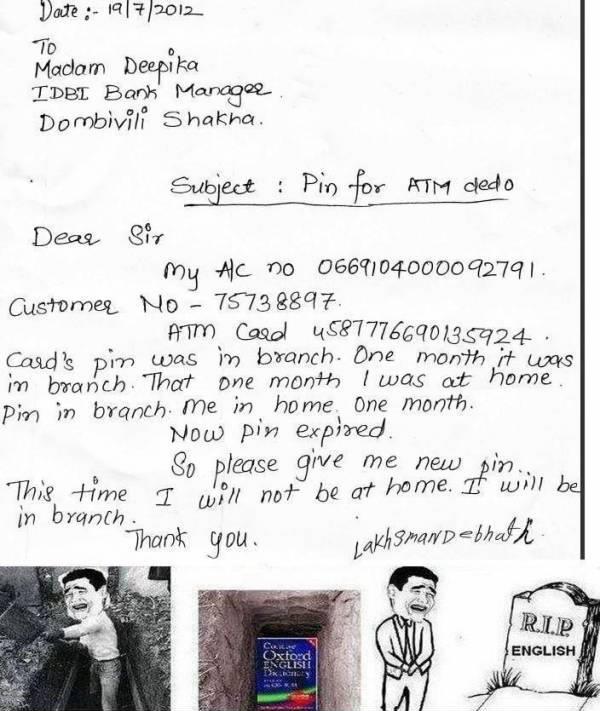 Date :- 19/7/2012
To
Madam Deepika
IDBI Bank Manager.
Dombivili Shakha.
Subject : Pin for ATM dedo
Dear Sir
My A/c no 0669104000092791.
Customer No - 75738897.
ATM Card 4587776690135924.
Card's pin was in branch. One month it was
in branch. That one month I was at home.
Pin in branch. me in home. One month.
Now pin expired.
So please give me new pin..
This time I will not be at home. I will be
in branch.
Thank you.
Lakhsman Debnath.
Concise
Oxford
ENGLISH
Dictionary
R.I.P.
ENGLISH